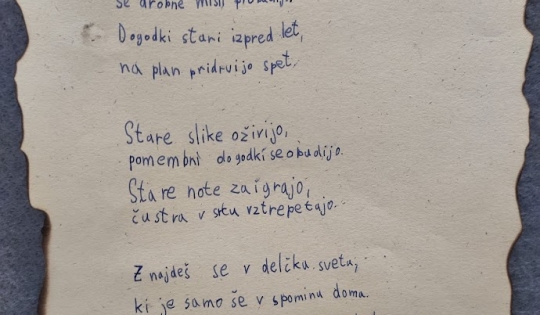 se drobne misli
Dogodki stari izpred let,
na plan pridrvijo spet.
Stare slike oživijo,
pomembni dogodki se obudijo.
Stare note zaigrajo,
čustva v srcu vztrepetajo.
Znajdeš se v delčku sveta,
ki je samo še v spominu doma.